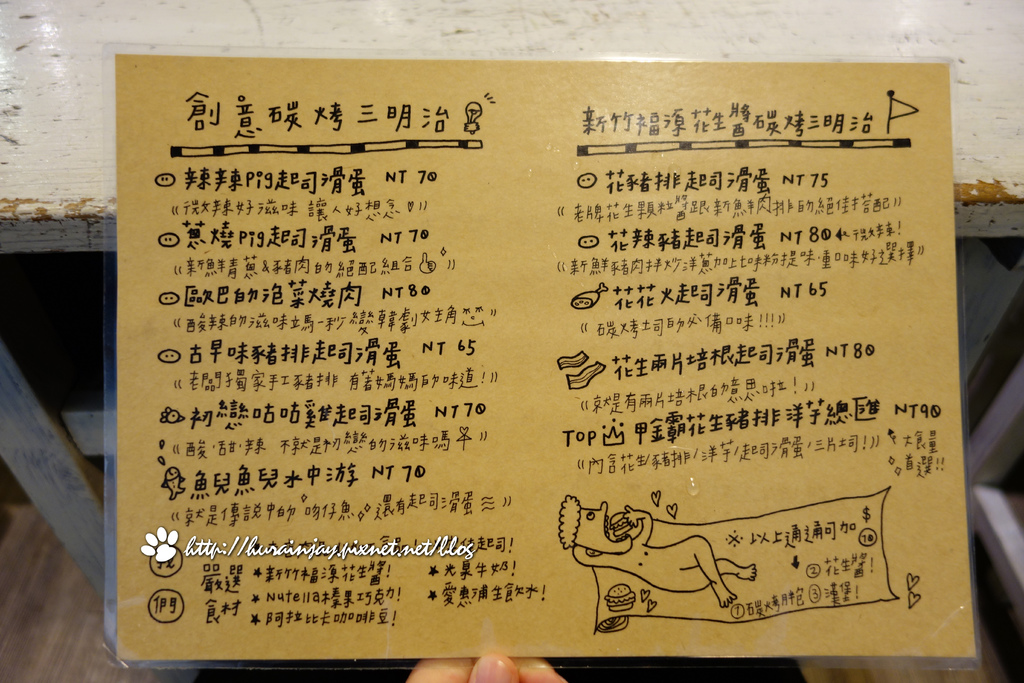 創意碳烤三明治
辣辣Pig起司滑蛋 NT 70
《微辣好滋味 讓人好想念♡》
蔥燒Pig起司滑蛋 NT 70
《新鮮青蔥&豬肉的絕配組合》
歐巴的泡菜燒肉 NT 80
《酸辣的滋味立馬一秒變韓劇女主角》
古早味豬排起司滑蛋 NT 65
《老闆獨家手工豬排 有著媽媽的味道!》
初戀咕咕雞起司滑蛋 NT 70
《酸·甜·辣 不就是初戀的滋味嗎》
魚兒魚兒水中游 NT 70
《就是傳說中的 吻仔魚 還有起司滑蛋》
起司!
們
嚴選食材
★新竹福源花生醬!
★Nutella榛果巧克力!
★阿拉比卡咖啡豆!
★光泉牛奶!
★愛惠浦生飲水!
新竹福源花生醬碳烤三明治
花豬排起司滑蛋 NT 75
《老牌花生顆粒醬跟新鮮肉排的絕佳搭配》
花辣豬起司滑蛋 NT 80 微辣!
《新鮮豬肉拌炒洋蔥加上味粉提味·重口味好選擇》
花花火起司滑蛋 NT 65
《碳烤土司的必備口味!!!》
花生兩片培根起司滑蛋 NT 80
《就是有兩片培根的意思啦!》
TOP 甲金霸花生豬排洋芋總匯 NT 90
《內含花生/豬排/洋芋/起司滑蛋/三片土司!》 大食量首選!!
※以上通通可加 $10
②花生醬!
①碳烤胖包 ③漢堡!
http://hurainjay.pixnet.net/blog